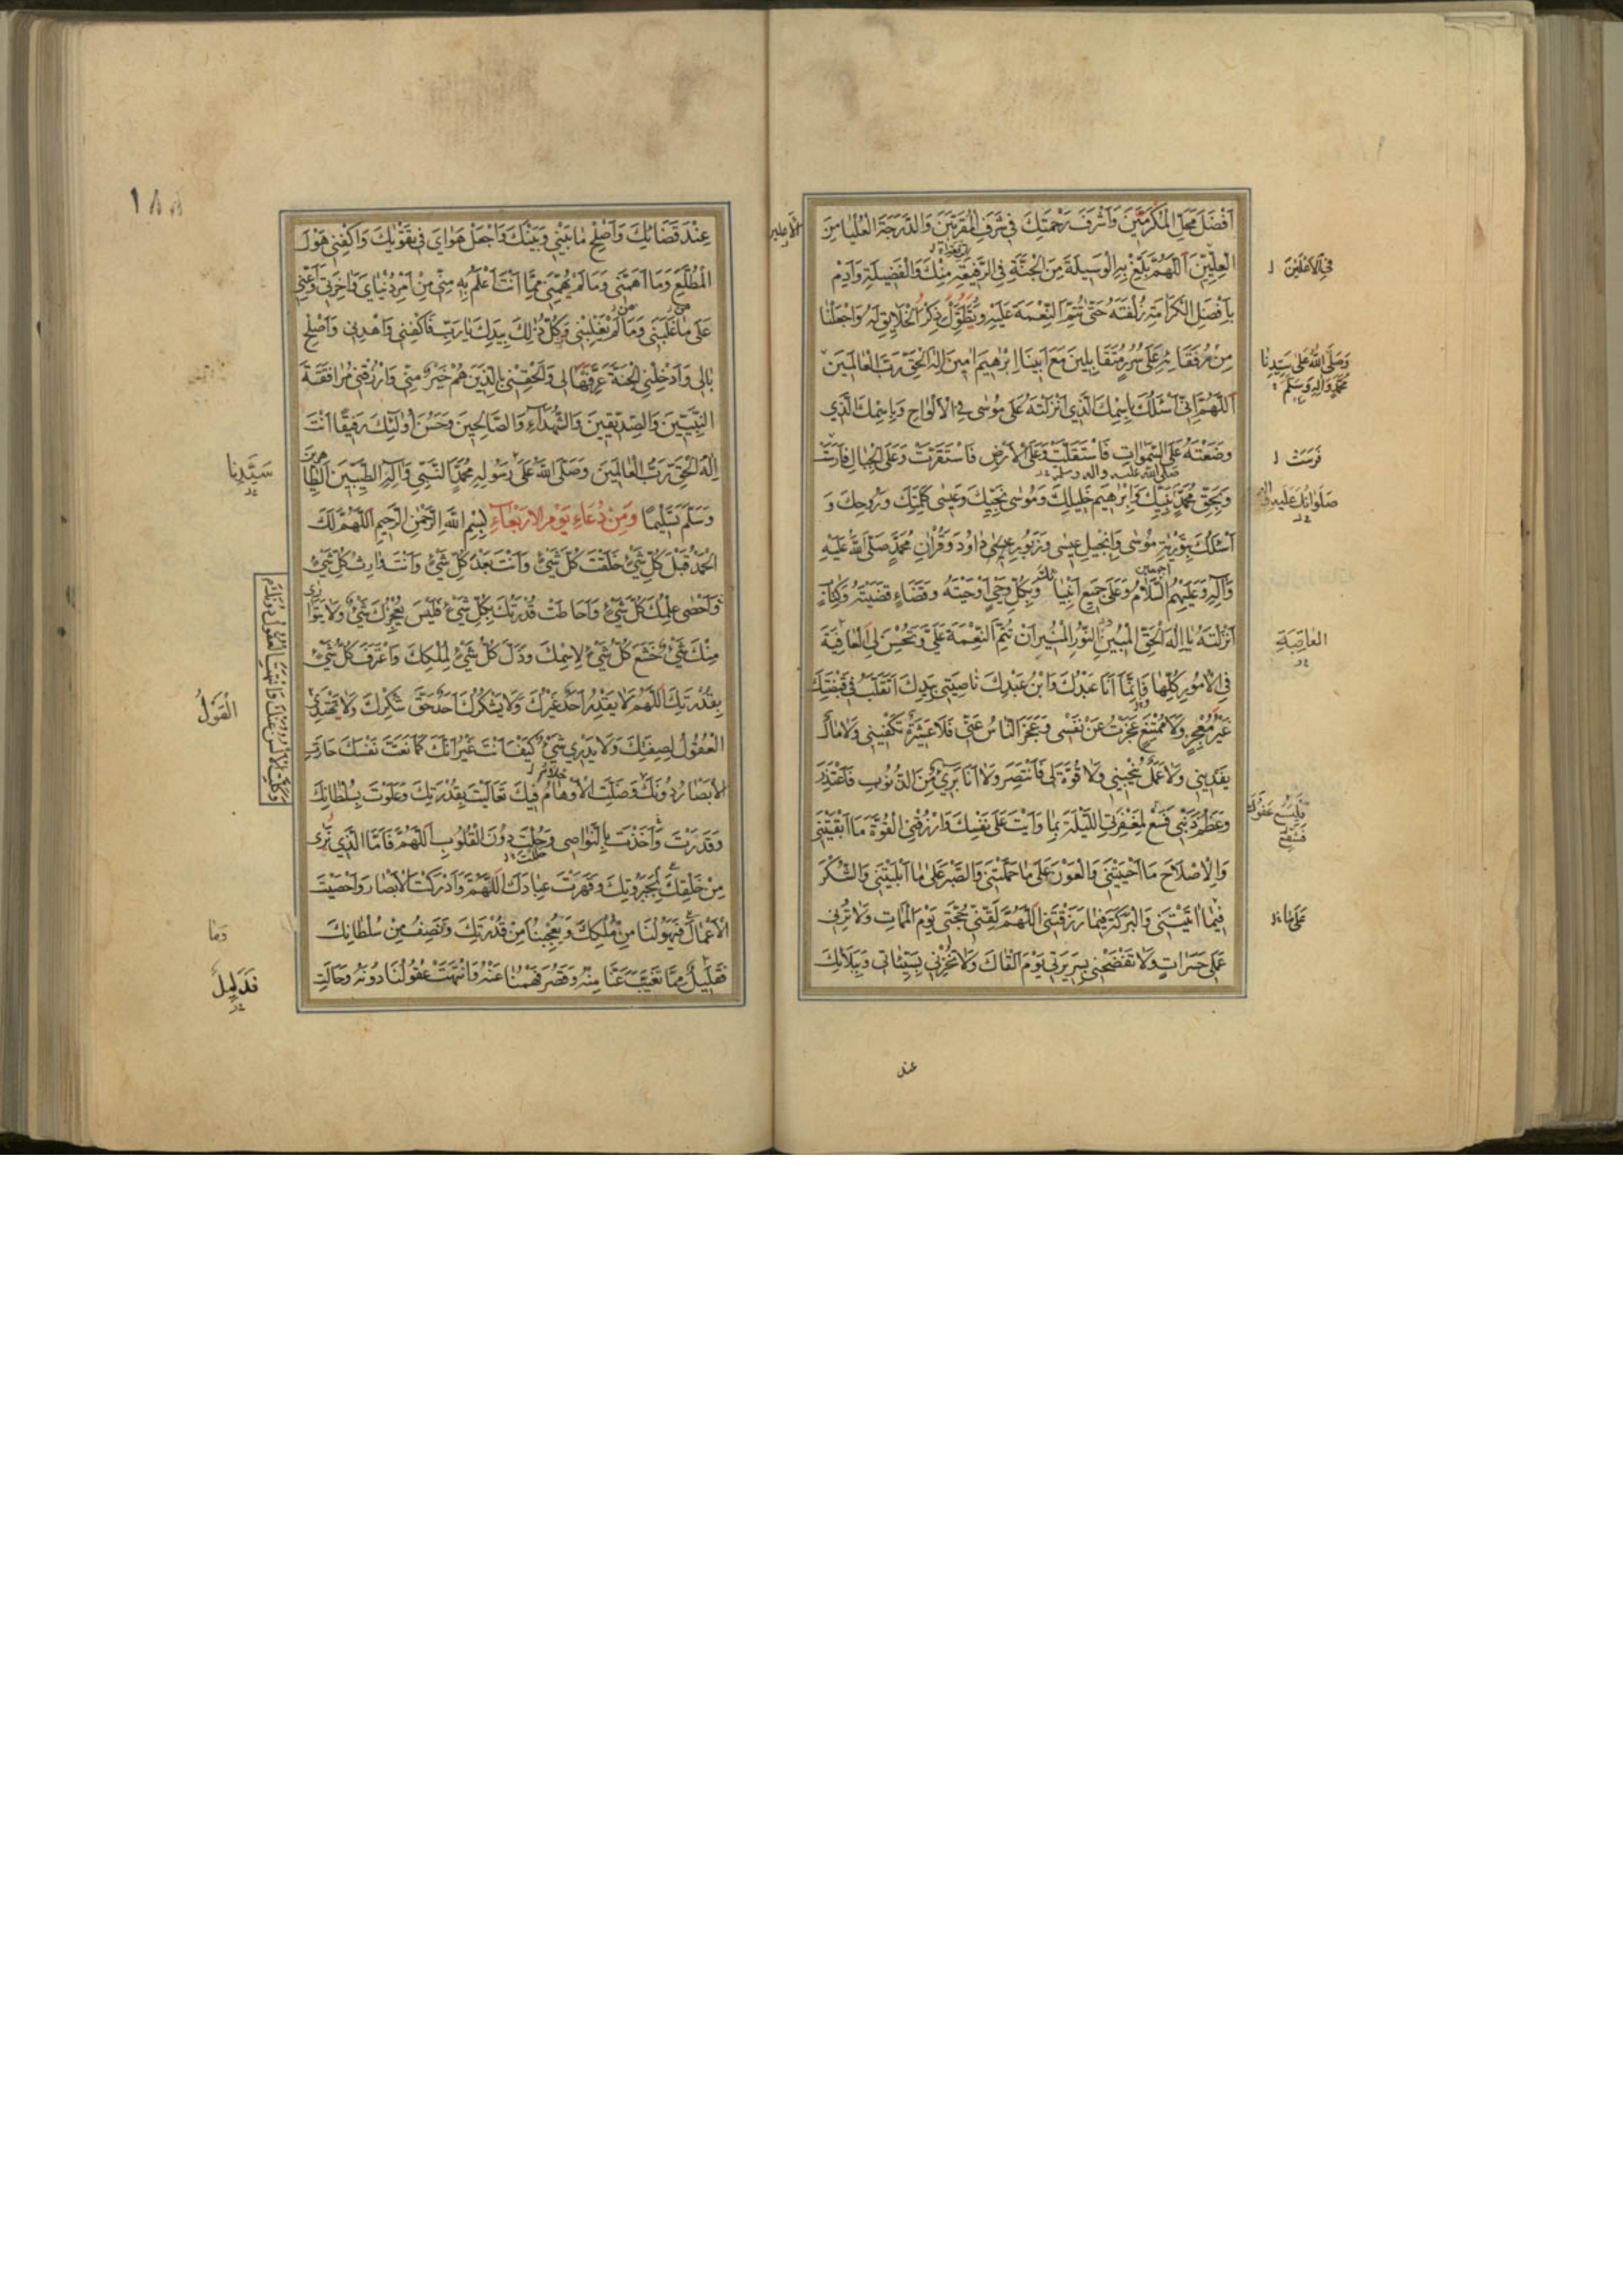 اَفْضَلَ مَحَلِّ الْمُكَرَّمِينَ وَاَشْرَفَ رَحْمَتِكَ فِي شَرَفِ الْمُقَرَّبِينَ وَالدَّرَجَةَ الْعُلْيَا مِنَ
الْعِلِّيِّينَ اَللّٰهُمَّ بَلِّغْ بِهِ الْوَسِيلَةَ مِنَ الْجَنَّةِ فِي الرَّفِيعَةِ مِنْكَ وَالْفَضِيلَةِ وَاَدِمْ
بِاَفْضَلِ الْكَرَامَةِ زُلْفَتَهُ حَتّٰى تُتِمَّ النِّعْمَةَ عَلَيْهِ وَيَطُولَ ذِكْرُ الْخَلَايِقِ لَهُ وَاجْعَلْنَا
مِنْ رُفَقَائِهِ عَلٰى سُرُرٍ مُتَقَابِلِينَ مَعَ اَبِينَا اِبْرٰهِيمَ اٰمِينَ اِلٰهَ الْحَقِّ رَبَّ الْعَالَمِينَ
اَللّٰهُمَّ اِنِّي اَسْئَلُكَ بِاسْمِكَ الَّذِي اَنْزَلْتَهُ عَلٰى مُوسٰى فِي الْاَلْوَاحِ وَبِاسْمِكَ الَّذِي
وَضَعْتَهُ عَلَى السَّمٰوَاتِ فَاسْتَقَلَّتْ وَعَلَى الْاَرْضِ فَاسْتَقَرَّتْ وَعَلَى الْجِبَالِ فَاَرْسَتْ
وَبِحَقِّ مُحَمَّدٍ نَبِيِّكَ وَاِبْرٰهِيمَ خَلِيلِكَ وَمُوسٰى نَجِيِّكَ وَعِيسٰى كَلِمَتِكَ وَرُوحِكَ وَ
اَسْئَلُكَ بِتَوْرٰيةِ مُوسٰى وَاِنْجِيلِ عِيسٰى وَزَبُورِ دَاوُدَ وَقُرْاٰنِ مُحَمَّدٍ صَلَّى اللّٰهُ عَلَيْهِ
وَاٰلِهِ وَعَلَيْهِمُ السَّلَامُ وَعَلٰى جَمِيعِ اَنْبِيَائِكَ وَبِكُلِّ وَحْيٍ اَوْحَيْتَهُ وَقَضَاءٍ قَضَيْتَهُ وَكِتَابٍ
اَنْزَلْتَهُ يَا اِلٰهَ الْحَقِّ الْمُبِينِ النُّورِ الْمُنِيرِ اَنْ تُتِمَّ النِّعْمَةَ عَلَيَّ وَتُحْسِنَ لِيَ الْعَافِيَةَ
فِي الْاُمُورِ كُلِّهَا فَاِنَّمَا اَنَا عَبْدُكَ وَابْنُ عَبْدِكَ نَاصِيَتِي بِيَدِكَ اَتَقَلَّبُ فِي قَبْضَتِكَ
غَيْرُ مُعْجِزٍ وَلَا مُمْتَنِعٍ عَجَزْتُ عَنْ نَفْسِي وَعَجَزَ النَّاسُ عَنِّي فَلَا عَشِيرَةَ تَكْفِينِي وَلَا مَالَ
يَفْدِينِي وَلَا عَمَلَ يُنْجِينِي وَلَا قُوَّةَ لِي فَاَنْتَصِرَ وَلَا اَنَا بَرِيءٌ مِنَ الذُّنُوبِ فَاَعْتَذِرَ
وَعَظُمَ ذَنْبِي فَسَعْ لِمَغْفِرَتِي اللَّيْلَةَ بِمَا وَاَيْتَ عَلٰى نَفْسِكَ وَارْزُقْنِي الْقُوَّةَ مَا اَبْقَيْتَنِي
وَالْاِصْلَاحَ مَا اَحْيَيْتَنِي وَالْعَوْنَ عَلٰى مَا حَمَّلْتَنِي وَالصَّبْرَ عَلٰى مَا اَبْلَيْتَنِي وَالشُّكْرَ
فِيمَا اٰتَيْتَنِي وَالْبَرَكَةَ فِيمَا رَزَقْتَنِي اَللّٰهُمَّ لَقِّنِّي حُجَّتِي يَوْمَ الْمَمَاتِ وَلَا تُرِنِي
عَمَلِي حَسَرَاتٍ وَلَا تَفْضَحْنِي بِسَرِيرَتِي يَوْمَ اَلْقَاكَ وَلَا تُخْزِنِي بِسَيِّئَاتِي وَبِبَلَائِكَ
فِي الْاَعْلَيْنَ
وَصَلَّى اللّٰهُ عَلٰى سَيِّدِنَا
مُحَمَّدٍ وَاٰلِهِ وَسَلَّمَ
فَرَسَتْ
صَلَوَاتُكَ عَلَيْهِ
الْعَاقِبَةِ
فَلْيَسَعْ عَفْوُكَ
عَلٰى مَا
عند
١٨٨
عِنْدَ قَضَائِكَ وَاَصْلِحْ مَا بَيْنِي وَبَيْنَكَ وَاجْعَلْ هَوَايَ فِي تَقْوٰيكَ وَاكْفِنِي هَوْلَ
الْمُطَّلَعِ وَمَا اَهَمَّنِي وَمَا لَمْ يُهِمَّنِي مِمَّا اَنْتَ اَعْلَمُ بِهِ مِنِّي مِنْ اَمْرِ دُنْيَايَ وَاٰخِرَتِي وَاَعِنِّي
عَلٰى مَا غَلَبَنِي وَمَا لَمْ يَغْلِبْنِي وَكُلُّ ذٰلِكَ بِيَدِكَ يَا رَبِّ فَاكْفِنِي وَاهْدِنِي وَاَصْلِحْ
بَالِي وَاَدْخِلْنِي الْجَنَّةَ عَرِّفْهَا لِي وَاَلْحِقْنِي بِالَّذِينَ هُمْ خَيْرٌ مِنِّي وَارْزُقْنِي مُرَافَقَةَ
النَّبِيِّينَ وَالصِّدِّيقِينَ وَالشُّهَدَاءِ وَالصَّالِحِينَ وَحَسُنَ اُولٰئِكَ رَفِيقًا اَنْتَ
اِلٰهُ الْحَقِّ رَبُّ الْعَالَمِينَ وَصَلَّى اللّٰهُ عَلٰى رَسُولِهِ مُحَمَّدٍ النَّبِيِّ وَاٰلِهِ الطَّيِّبِينَ الطَّاهِرِينَ
وَسَلَّمَ تَسْلِيمًا وَمِنْ دُعَاءِ يَوْمِ الْاَرْبَعَاءِ بِسْمِ اللّٰهِ الرَّحْمٰنِ الرَّحِيمِ اَللّٰهُمَّ لَكَ
الْحَمْدُ قَبْلَ كُلِّ شَيْءٍ خَلَقْتَ كُلَّ شَيْءٍ وَاَنْتَ بَعْدَ كُلِّ شَيْءٍ وَاَنْتَ وَارِثُ كُلِّ شَيْءٍ
وَاَحْصٰى عِلْمُكَ كُلَّ شَيْءٍ وَاَحَاطَتْ قُدْرَتُكَ بِكُلِّ شَيْءٍ فَلَيْسَ يُعْجِزُكَ شَيْءٌ وَلَا يَتَوَارٰى
مِنْكَ شَيْءٌ خَشَعَ كُلُّ شَيْءٍ لِاسْمِكَ وَذَلَّ كُلُّ شَيْءٍ لِمُلْكِكَ وَاعْتَرَفَ كُلُّ شَيْءٍ
بِقُدْرَتِكَ اَللّٰهُمَّ لَا يَقْدِرُ اَحَدٌ غَيْرُكَ وَلَا يَشْكُرُكَ اَحَدٌ حَقَّ شُكْرِكَ وَلَا تَهْتَدِي
الْعُقُولُ لِصِفَتِكَ وَلَا يَدْرِي شَيْءٌ كَيْفَ اَنْتَ غَيْرَ اَنَّكَ كَمَا نَعَتَّ نَفْسَكَ حَارَتِ
الْاَبْصَارُ دُونَكَ وَضَلَّتِ الْاَوْهَامُ فِيكَ تَعَالَيْتَ بِقُدْرَتِكَ وَعَلَوْتَ بِسُلْطَانِكَ
وَقَدَرْتَ وَاَخَذْتَ بِالنَّوَاصِي وَحُلْتَ دُونَ الْقُلُوبِ اَللّٰهُمَّ فَاَمَّا الَّذِي نَرٰى
مِنْ خَلْقِكَ لِجَبَرُوتِكَ وَقَهَرْتَ عِبَادَكَ اَللّٰهُمَّ وَاَدْرَكْتَ الْاَبْصَارَ وَاَحْصَيْتَ
الْاَعْمَالَ فَيَهُولُنَا مِنْ مُلْكِكَ وَيُعْجِبُنَا مِنْ قُدْرَتِكَ وَنَصِفُ مِنْ سُلْطَانِكَ
فَقَلِيلٌ مِمَّا تَغَيَّبَ عَنَّا مِنْهُ وَقَصُرَ فَهْمُنَا عَنْهُ وَانْتَهَتْ عُقُولُنَا دُونَهُ وَحَالَتِ
سَيِّدِنَا
الْقَوْلُ
وَمَا